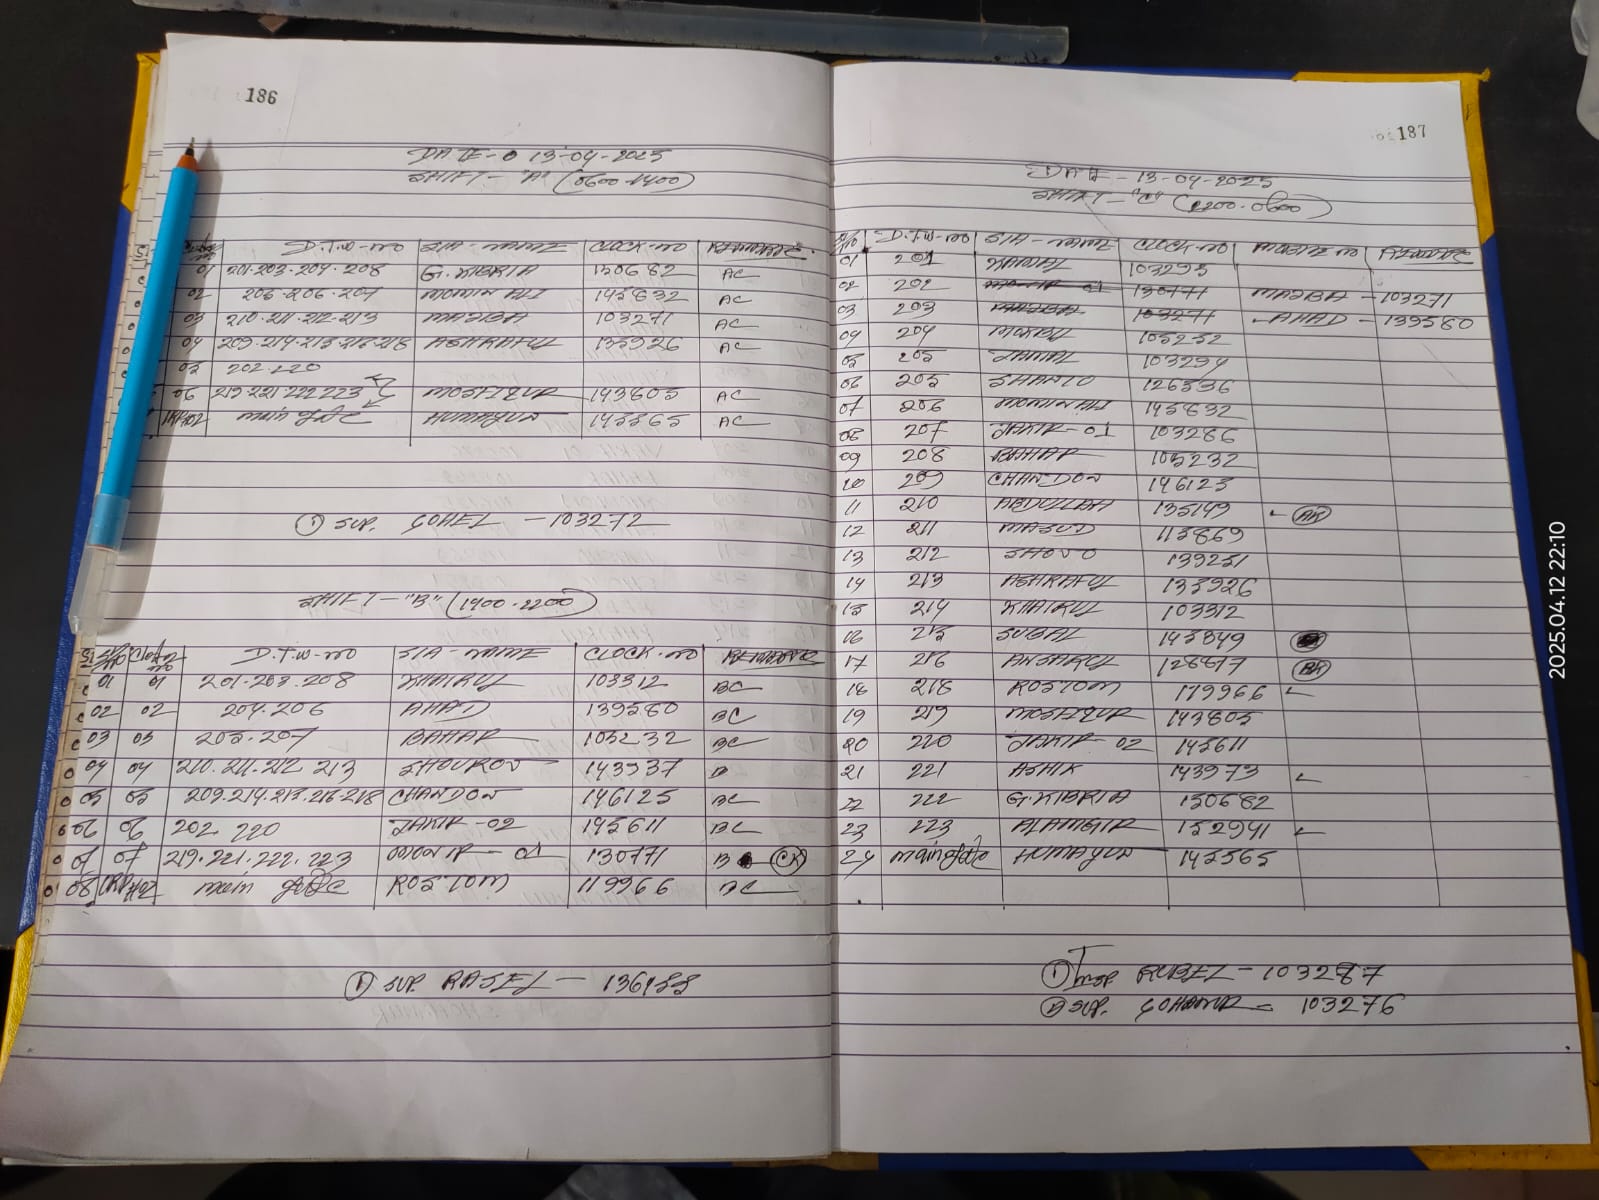 186
DATE - 13-04-2025
SHIFT - "A" (0600-1400)
D.T.W-NO S/A-NAME CLOCK-NO REMARKS
01 201.203.204.208 G.KIBRIA 130682 AC
02 205.206.207 MOMIN ALI 145832 AC
03 210.211.212.213 MAZBA 103271 AC
04 209.214.215.216.218 ASHRAFUL 133926 AC
05 202.220
06 219.221.222.223 MOSFIQUR 143805 AC
main gate HUMAYUN 145565 AC
① SUP. SOHEL - 103272
SHIFT - "B" (1400-2200)
D.T.W-NO S/A-NAME CLOCK-NO REMARKS
01 01 201.203.208 KHAIRUL 103312 BC
02 02 204.206 AHAD 139580 BC
03 03 205.207 BAHAR 105232 BC
04 04 210.211.212.213 SHOUROV 143937 B
05 05 209.214.215.216.218 CHANDON 146125 BC
06 06 202 220 JAKIR-02 145611 BC
07 07 219.221.222.223 MONIR-01 130771 B CK
08 main gate ROSTOM 119966 BC
① SUP. RASEL - 136455
187
DATE - 13-04-2025
SHIFT - "C" (2200-0600)
S/NO D.T.W-NO S/A-NAME CLOCK-NO MOBILE NO REMARKS
01 201 103295
02 202 MONIR-01 130771 MAZBA - 103271
03 203 MAZBA 103271 AHAD - 139580
04 204 105252
05 205 JAMAL 103294
06 205 SHANTO 126336
07 206 MOMIN ALI 145832
08 207 JAKIR-01 103286
09 208 BAHAR 105232
10 209 CHANDON 146125
11 210 ABDULLAH 135149
12 211 MASUD 113869
13 212 SHOVO 139251
14 213 ASHRAFUL 133926
15 214 KHAIRUL 103312
16 215 SUBAL 143849
17 216 ANSARUL 128817
18 218 ROSTOM 119966
19 219 MOSFIQUR 143805
20 220 JAKIR-02 145611
21 221 ASHIK 143973
22 222 G.KIBRIA 130682
23 223 ALAMGIR 152941
24 main gate HUMAYUN 145565
① Insp. RUBEL - 103287
② SUP. - 103276
2025.04.12 22:10